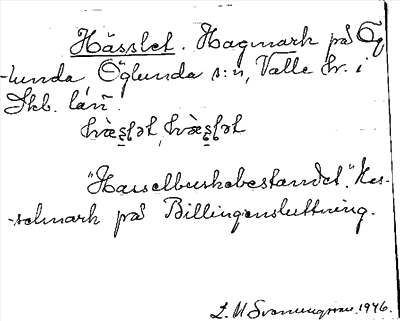 Hässlet. Hagmark på Ög
-lunda Öglunda s:n, Valle hr. i
Skb. län.
hàs̱lət, hàs̱lət
"Hasselbuskebestandet." Has-
-selmark på Billingensluttning.
L. M Svanungsson. 1946.